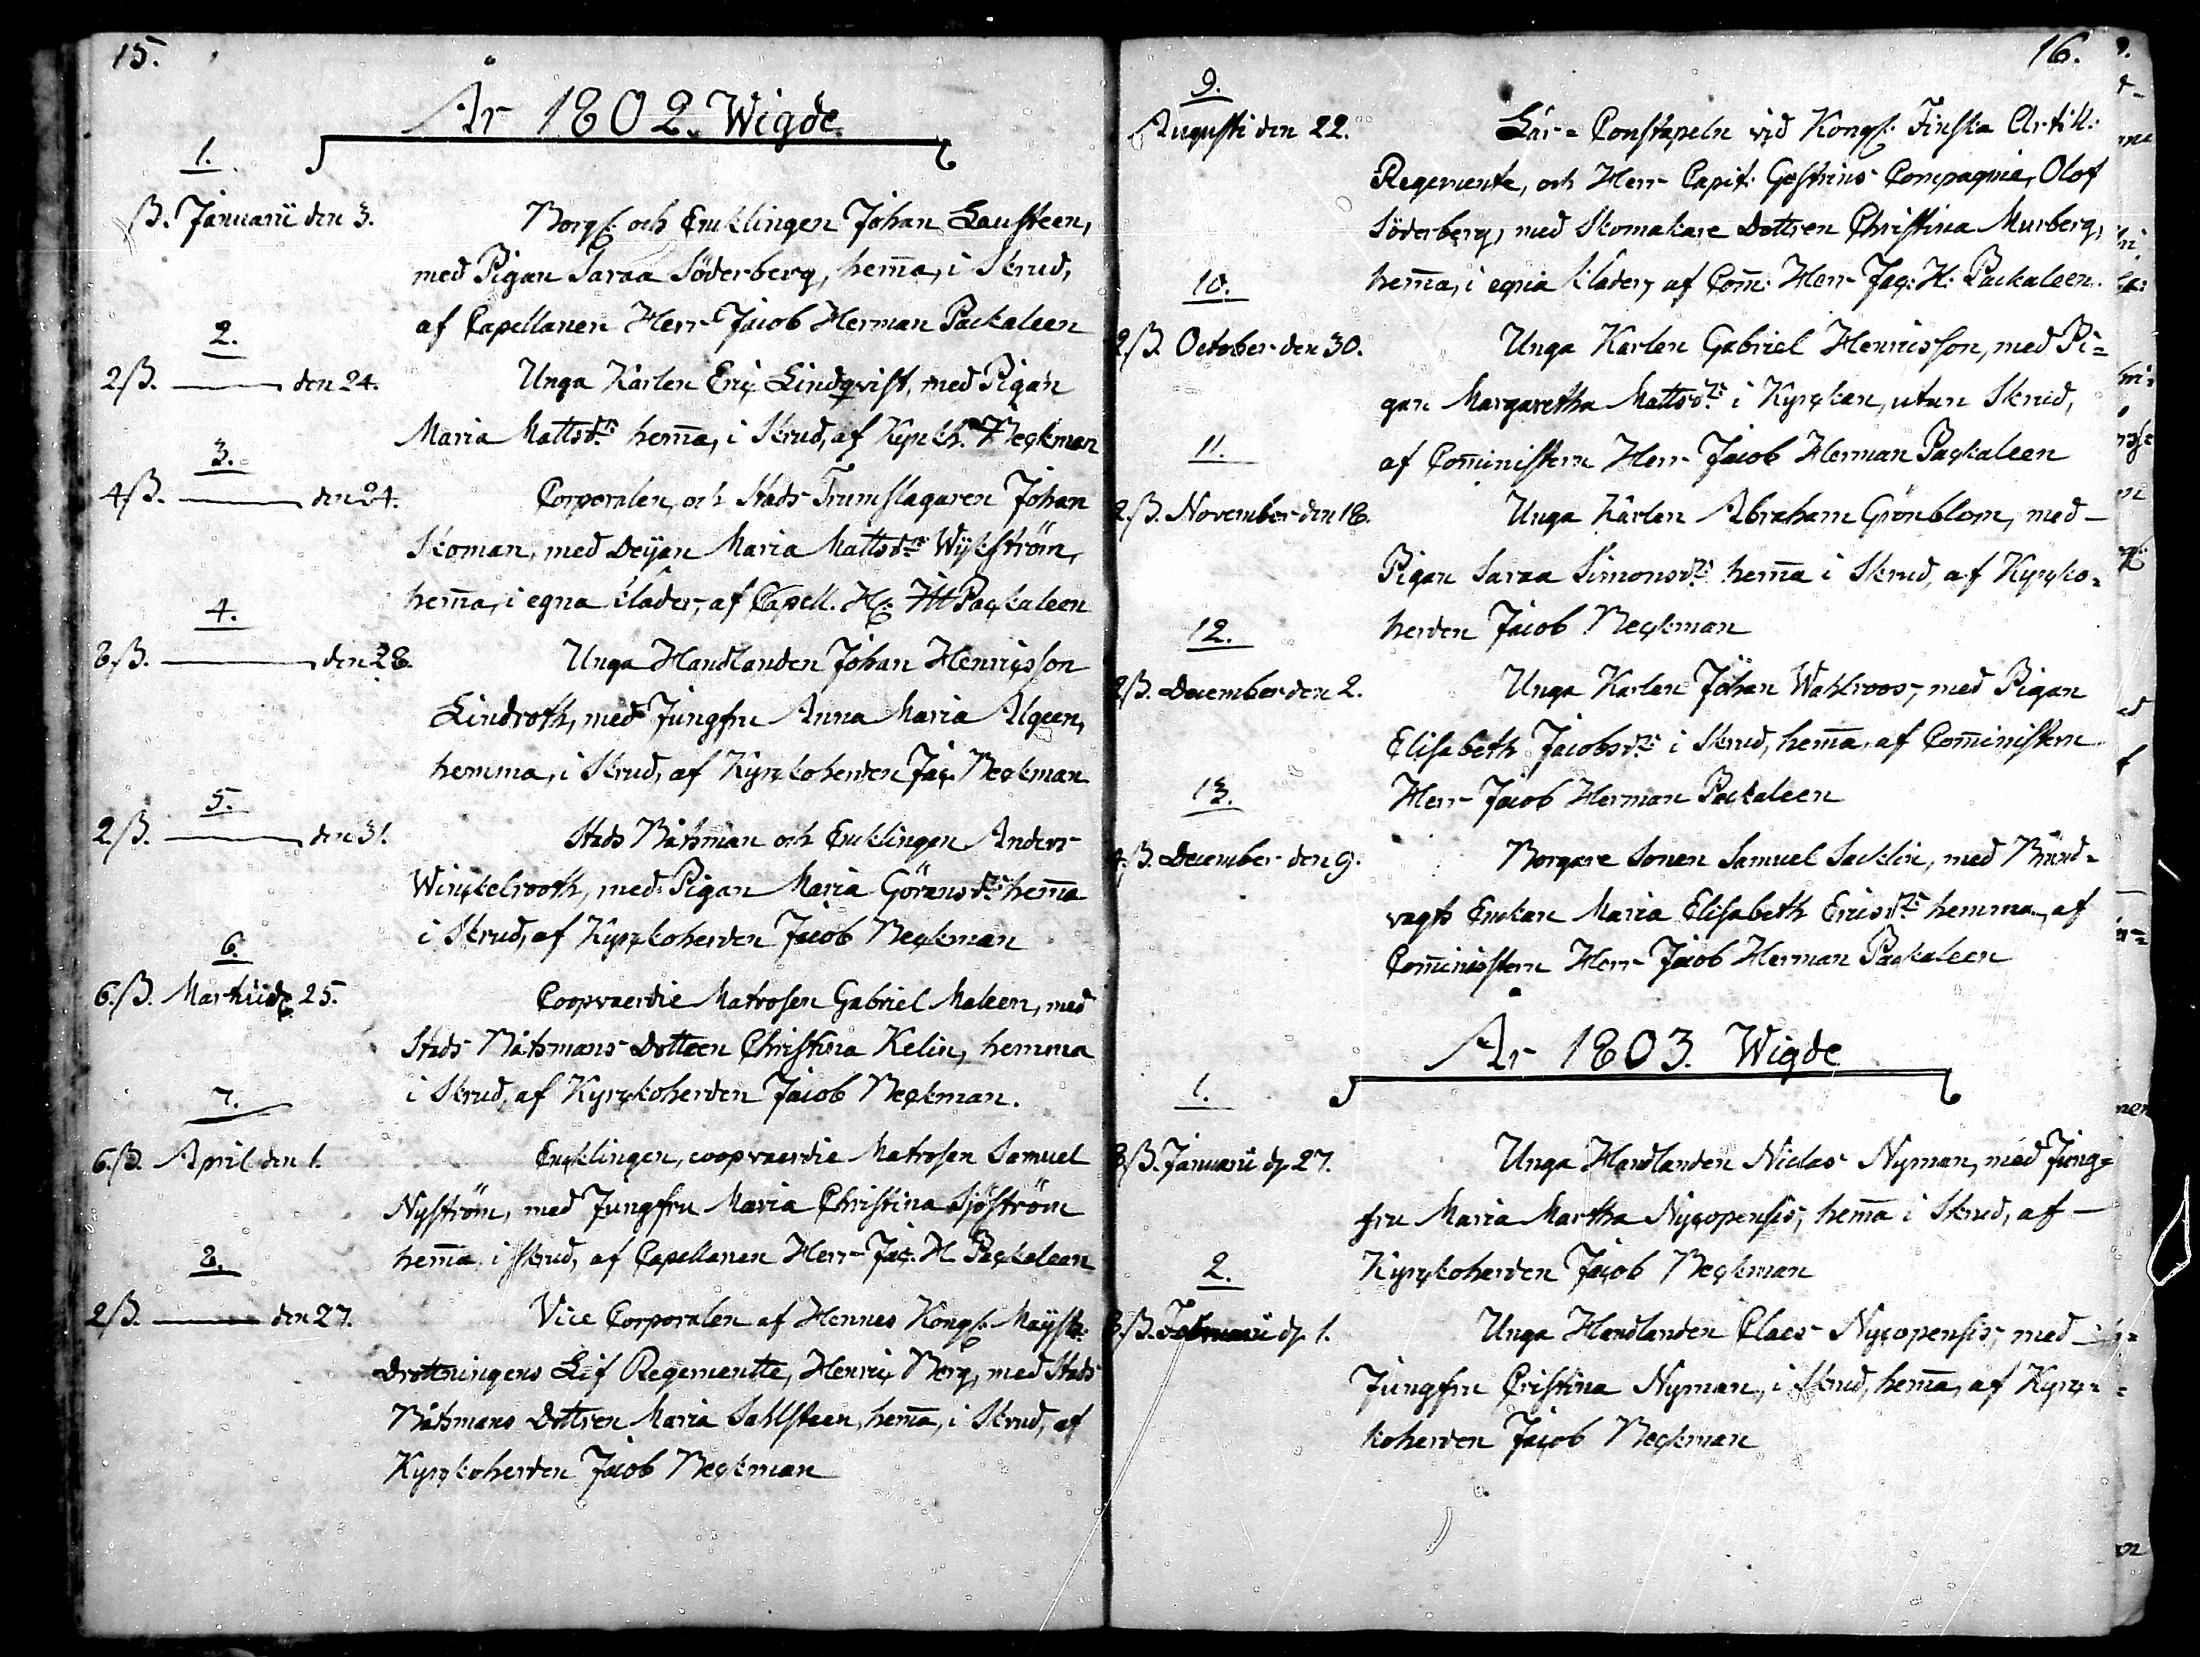 15.
År 1802. Wigde
1.
ß. Januarii den 3. Borg: och Enklingen Johan Lausteen,
med Pigan Saraa Söderberg, hem̄a, i Skrud,
af Capellanen Herr Jacob Herman Packaleen
2.
2 ß. — den 24. Unga Karlen Eric Lindqvist, med Pigan
Maria Mattsdr. hem̄a, i Skrud, af Kyrkh. J Beckman
3.
4 ß. — den 24. Corporalen, och Stads Trumslagaren Johan
Skoman, med Deijan Maria Mattsdr. Wijkström,
hem̄a, i egna kläder, af Capell. H: JH Packaleen
4.
8 ß. — den 28. Unga Handlanden Johan Henricsson
Lindroth, med Jungfru Anna Maria Algeen,
hemma, i Skrud, af Kyrckoherden Jac. Beckman
5.
2 ß. — den 31. Stads Båtsman och Enklingen Anders
Winckelrooth, med Pigan Maria Göransdr: hem̄a
i Skrud, af Kyrckoherden Jacob Beckman
6.
6. ß. Martii d. 25. Coopvaerdie Matrosen Gabriel Maleen, med
Stads Båtsmans Dottren Christina Kelin, hemma
i Skrud, af Kyrckoherden Jacob Beckman.
7.
6. ß. April den 1. Encklingen, coopvaerdie Matrosen Samuel
Nyström, med Jungfru Maria Christina Sjöström
hem̄a i skrud, af Capellanen Herr Jac. H. Packaleen
8.
2 ß. — den 27. Vice Corporalen af Hennes Kongl. Mayst:
Drottningens Lif Regemente, Henric Berg, med Stads
Båtsmans Dottren Maria Sahlsteen, hem̄a, i Skrud, af
Kyrckoherden Jacob Beckman
16.
9.
Augusti den 22. Lär-Constapeln vid Kongl: Finska Artill:
Regemente, och Herr Capit: Gestrins Compagnie, Olof
Söderberg, med Skomakare Dottren Christina Murberg,
hem̄a, i egna kläder, af Com̄: Herr Jac: H: Packaleen.
10.
2 ß. October den 30. Unga Karlen Gabriel Henricsson, med Pi=
gan Margaretha Mattsdr: i Kyrckan, utan Skrud,
af Com̄inistern Herr Jacob Herman Packaleen
11.
2 ß. November den 18. Unga Karlen Abraham Grönblom, med
Pigan Saraa Simonsdr: hem̄a i Skrud, af Kyrcko=
herden Jacob Beckman
12.
2 ß. December den 2. Unga Karlen Johan Wahlroos, med Pigan
Elisabeth Jacobsdr: i Skrud, hem̄a, af Com̄inistern
Herr Jacob Herman Packaleen
13.
4. ß. December den 9. Borgare Sonen Samuel Sacklin, med Brand=
vagts Enkan Maria Elisabeth Ericsdr: hemma, af
Com̄inistern Herr Jacob Herman Packaleen
År 1803. Wigde
1.
8 ß. Januarii d. 27. Unga Handlanden Niclas Nyman, med Jung=
fru Maria Martha Nycopensis, hem̄a i Skrud, af
Kyrckoherden Jacob Beckman
2.
8 ß. Februarii d. 1. Unga Handlanden Claes Nycopensis, med
Jungfru Cristina Nyman, i Skrud, hem̄a, af Kyrc=
koherden Jacob Beckman